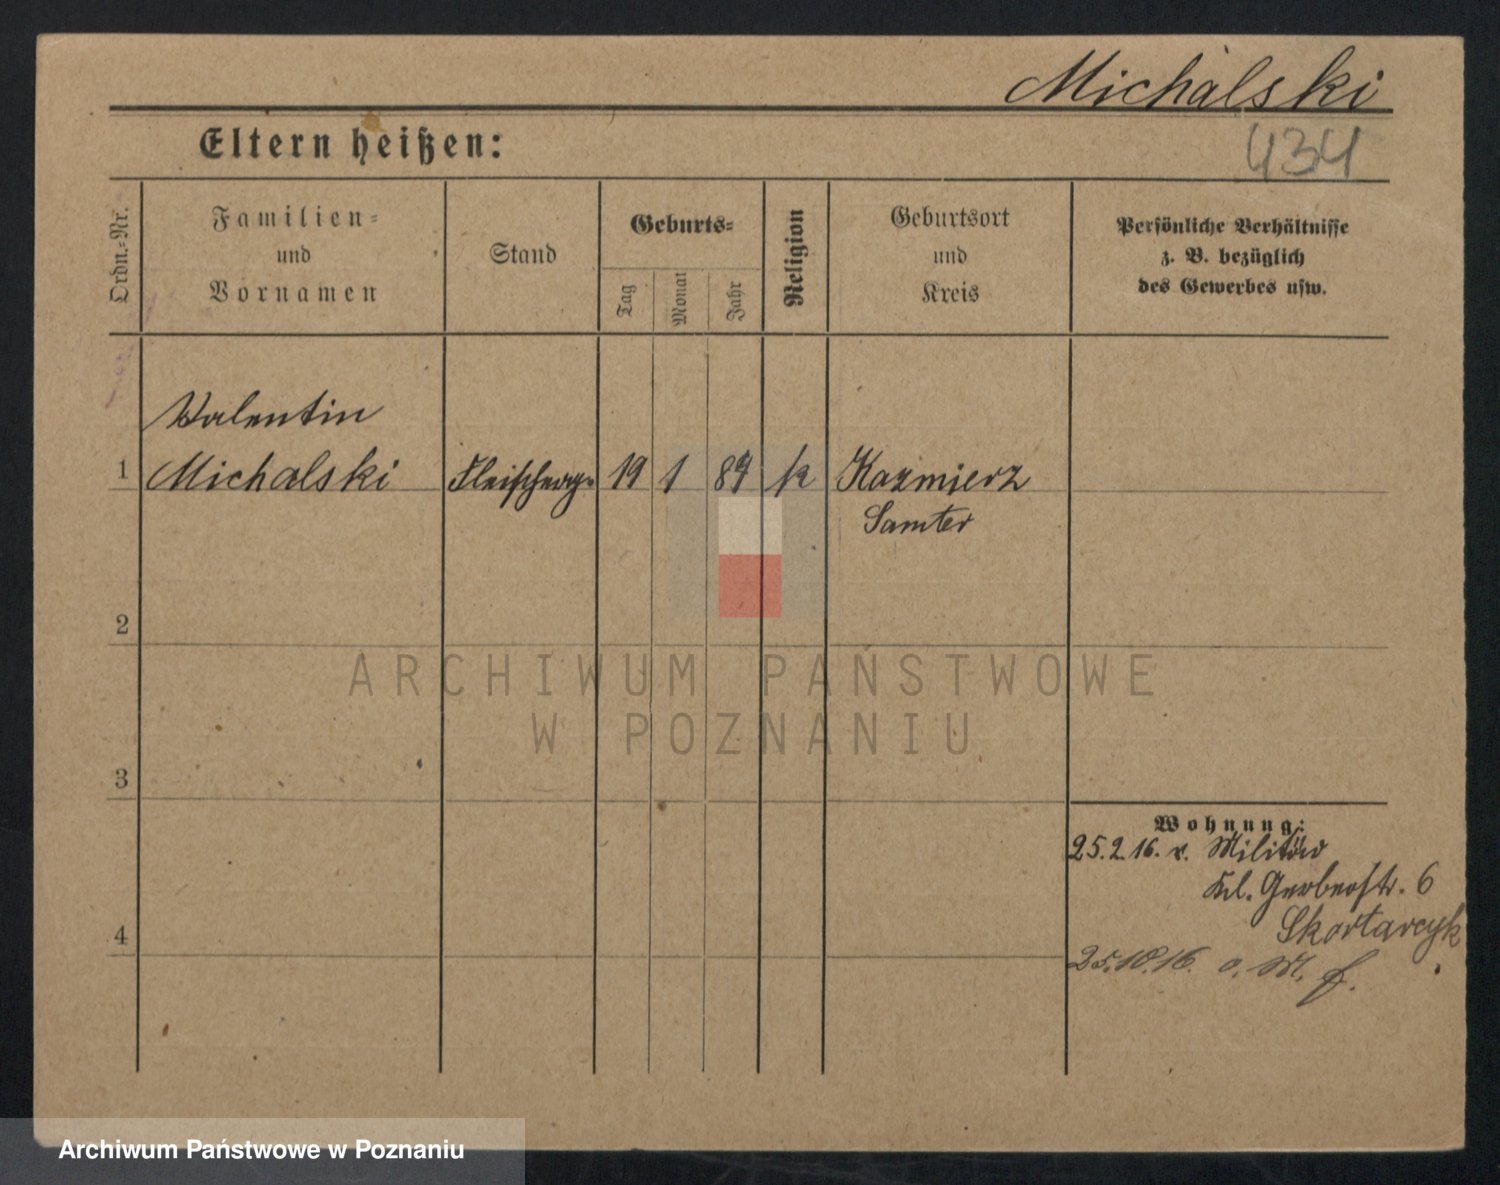 Michalski
Eltern heißen:
434
Ordn.-Nr.
Familien-
und
Vornamen
Stand
Geburts-
Tag
Monat
Jahr
Religion
Geburtsort
und
Kreis
Persönliche Verhältnisse
z. B. bezüglich
des Gewerbes usw.
Valentin
1 Michalski Fleischerg. 19 1 89 k Kazmierz
Samter
2
ARCHIWUM PAŃSTWOWE
W POZNANIU
3
Wohnung:
25.2.16. v. Militär
Kl. Gerberstr. 6
Skortarcyk
4
25.10.16. o. M.
Archiwum Państwowe w Poznaniu